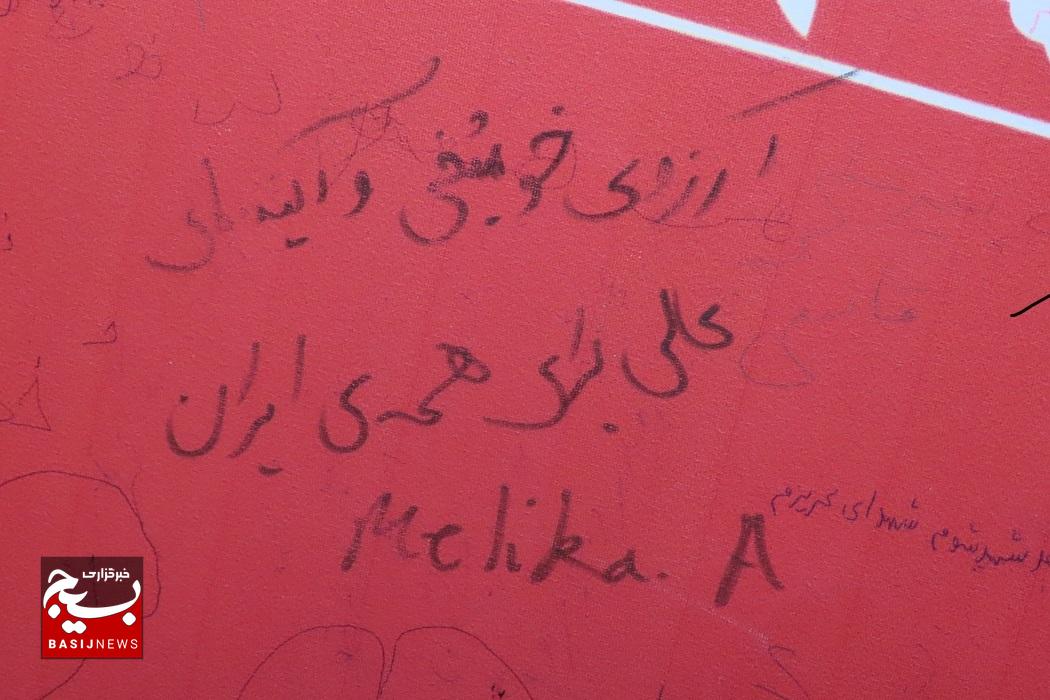 آرزوی خوشبختی و آینده‌ای
عالی برای همه‌ی ایران
Melika. A
شهید شوم شهدای عزیزم
خبرگزاری
بسیج
BASIJNEWS